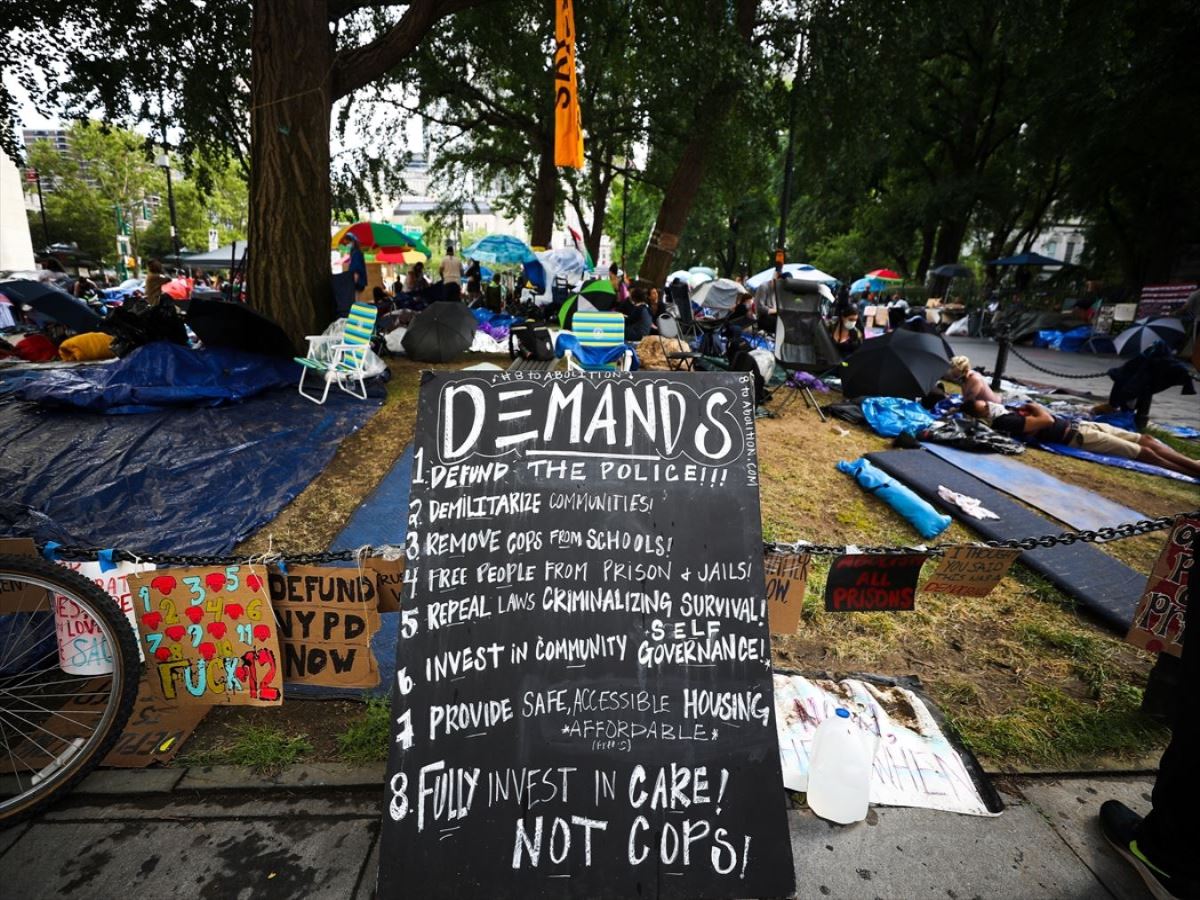 #8 TO ABOLITION
8TOABOLITION.COM
DEMANDS
1. DEFUND THE POLICE!!!
2. DEMILITARIZE COMMUNITIES!
3 REMOVE COPS FROM SCHOOLS!
4 FREE PEOPLE FROM PRISON & JAILS!
5 REPEAL LAWS CRIMINALIZING SURVIVAL!
6. INVEST IN COMMUNITY SELF
GOVERNANCE!*
7 PROVIDE SAFE, ACCESSIBLE HOUSING
*AFFORDABLE*
8. FULLY INVEST IN CARE!
NOT COPS!
1 2 3 5
4 6
7 8 9 11
FUCK 12
DEFUND
NYPD
NOW
ABOLISH
ALL
PRISONS
I THOUGHT
YOU SAID
THIS WAS A
WHEN